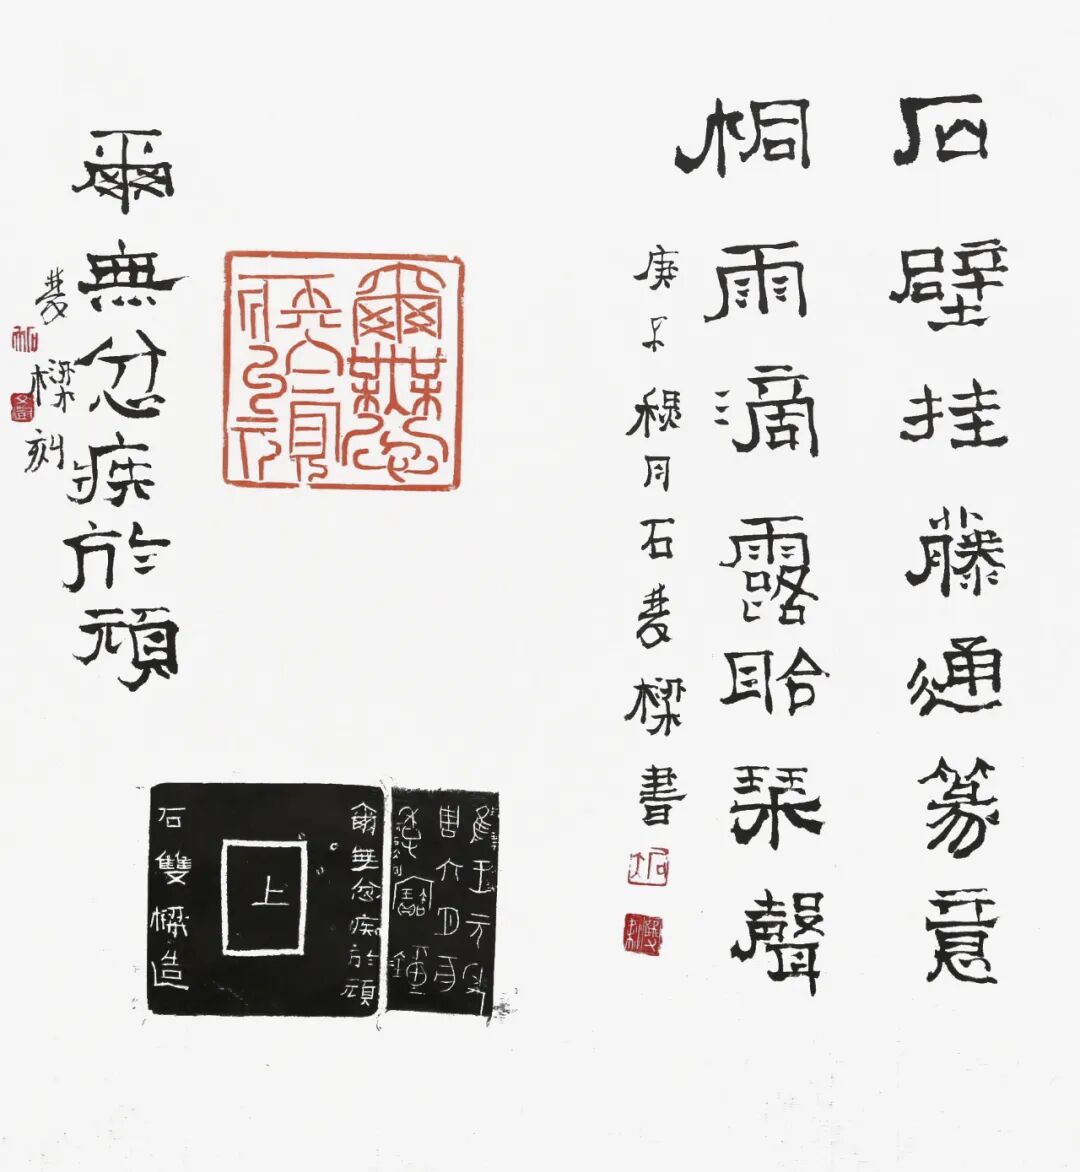 石壁挂藤通篆意
桐雨滴露聆琴聲
庚子穐月石雙樑書
爾無忿
疾於頑
爾無忿疾於頑
雙樑刻
爾無忿疾於頑
上
石雙樑造